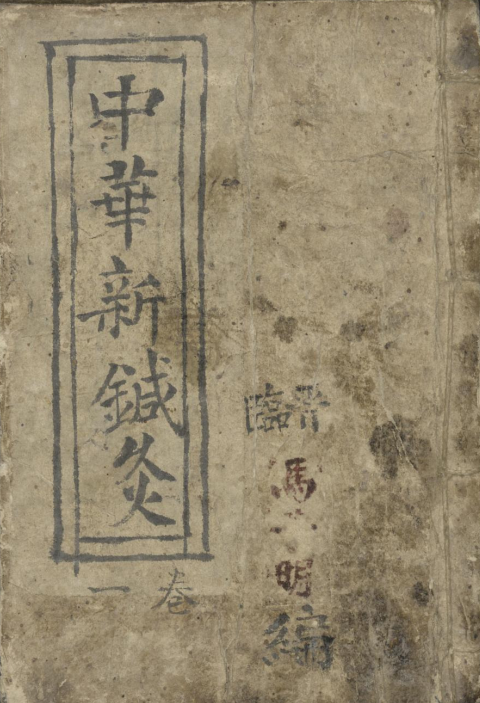 中華新鍼灸
卷一
晋臨
馮 明
編